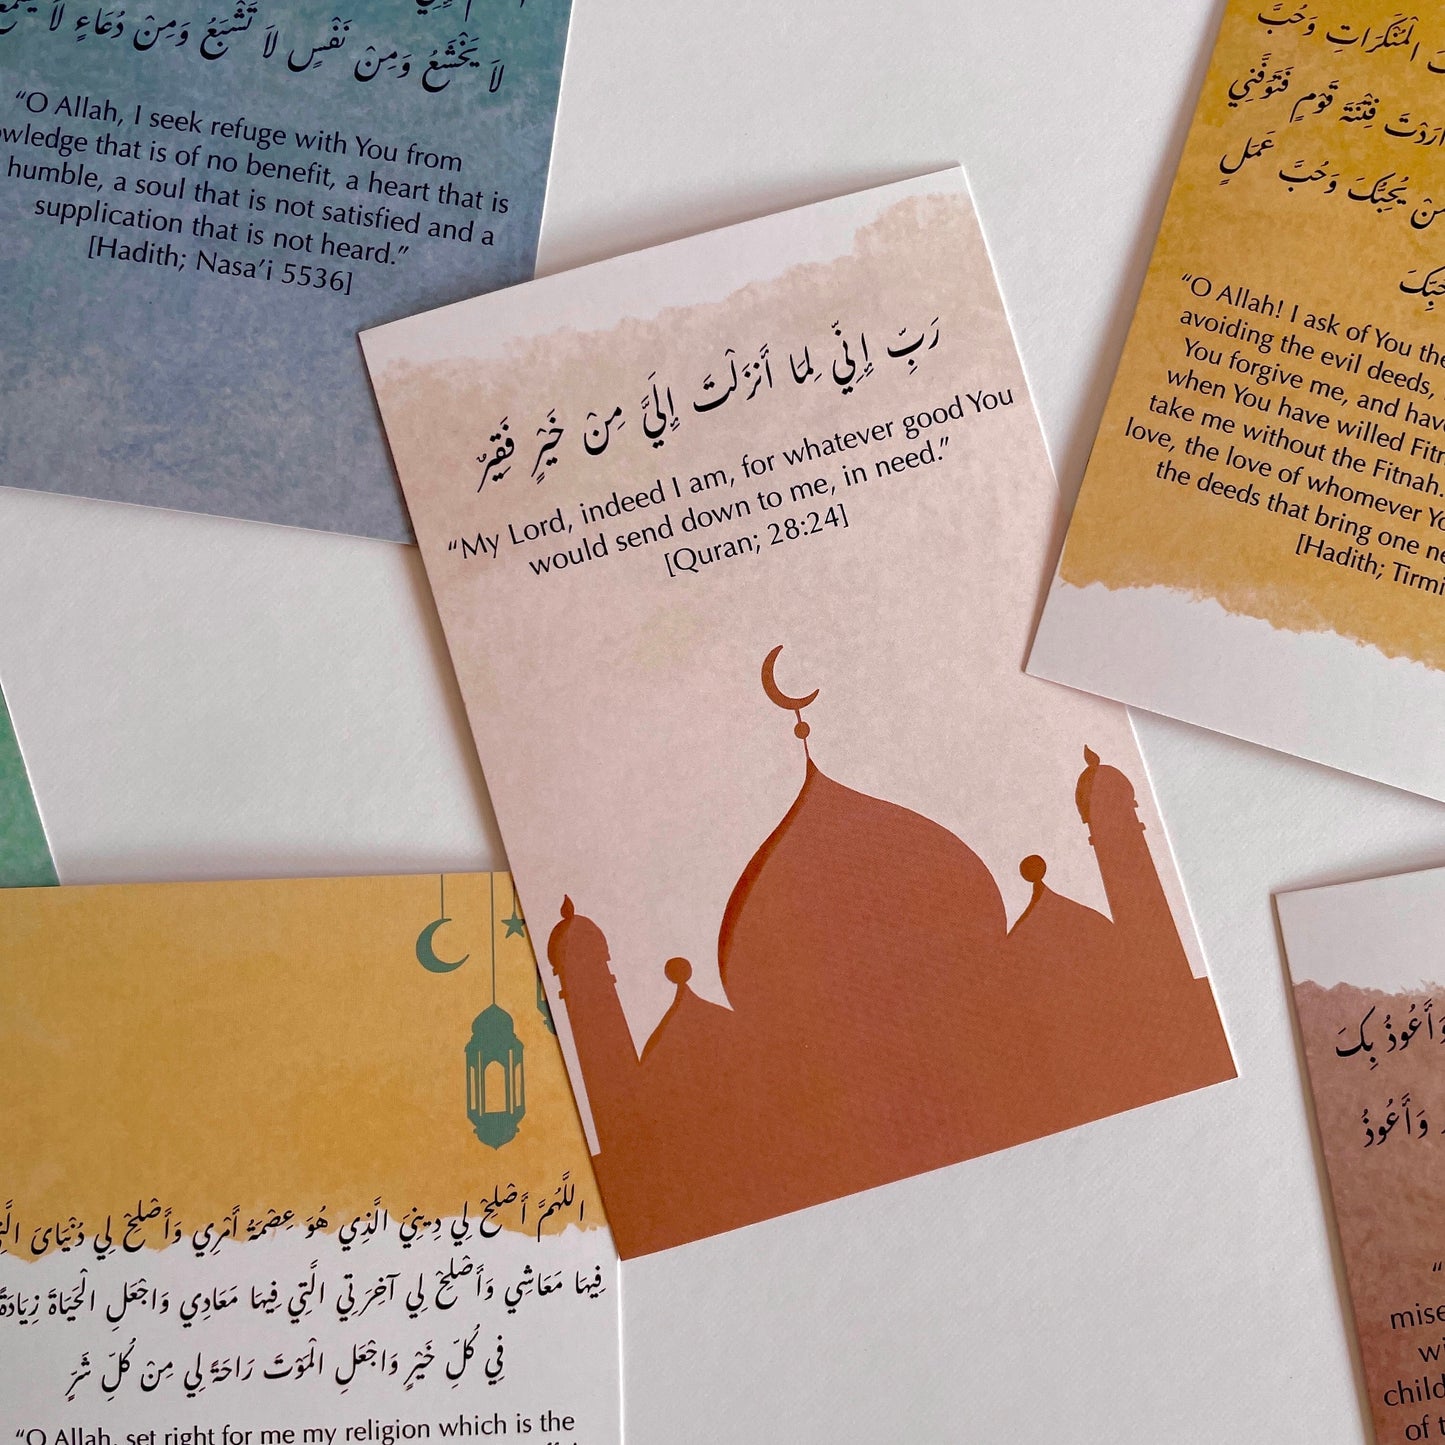 لَا يَخْشَعُ وَمِنْ نَفْسٍ لَا تَشْبَعُ وَمِنْ دُعَاءٍ لَا
“O Allah, I seek refuge with You from
that is of no benefit, a heart that is
humble, a soul that is not satisfied and a
supplication that is not heard.”
[Hadith; Nasa’i 5536]
رَبِّ إِنِّي لِمَا أَنزَلْتَ إِلَيَّ مِنْ خَيْرٍ فَقِيرٌ
“My Lord, indeed I am, for whatever good You
would send down to me, in need.”
[Quran; 28:24]
الْمُنْكَرَاتِ وَحُبَّ
فِتْنَةَ قَوْمٍ فَتَوَفَّنِي
يُحِبُّكَ وَحُبَّ عَمَلٍ
“O Allah! I ask of You the
avoiding the evil deeds,
You forgive me, and have
when You have willed
take me without the Fitnah.
love, the love of whomever
the deeds that bring one
[Hadith;
اللَّهُمَّ أَصْلِحْ لِي دِينِيَ الَّذِي هُوَ عِصْمَةُ أَمْرِي وَأَصْلِحْ لِي دُنْيَايَ
فِيهَا مَعَاشِي وَأَصْلِحْ لِي آخِرَتِي الَّتِي فِيهَا مَعَادِي وَاجْعَلِ الْحَيَاةَ زِيَادَةً
فِي كُلِّ خَيْرٍ وَاجْعَلِ الْمَوْتَ رَاحَةً لِي مِنْ كُلِّ شَرٍّ
“O Allah, set right for me my religion which is the
وَأَعُوذُ بِكَ
وَأَعُوذُ
“
of